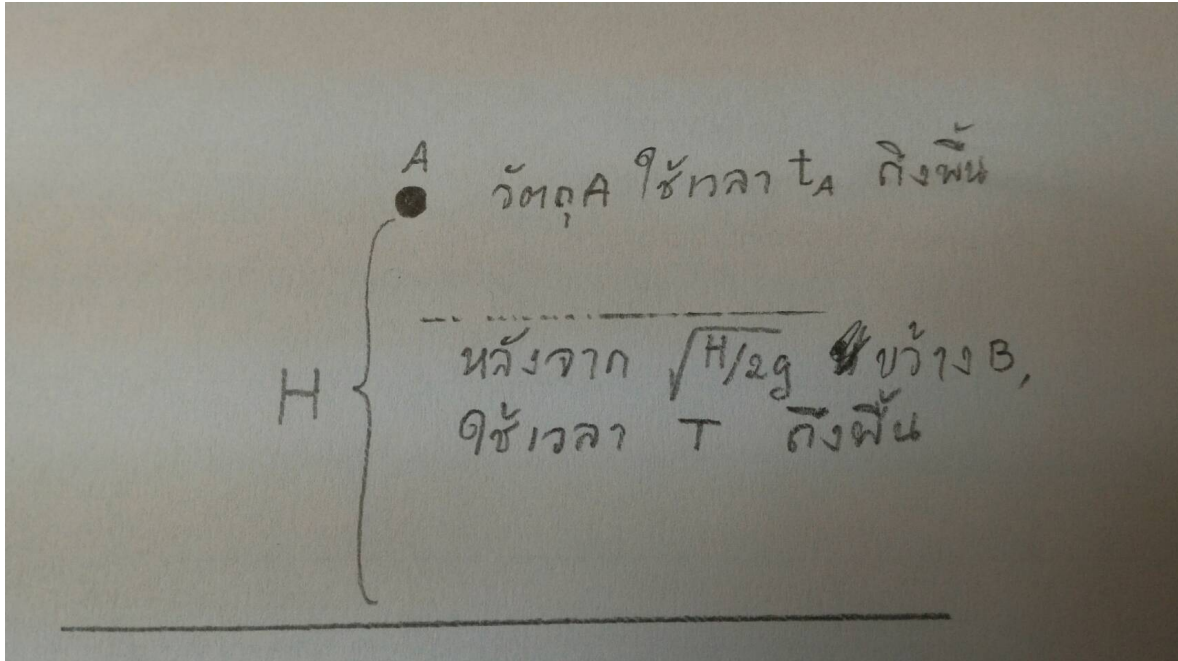 A
วัตถุA ใช้เวลา tA ถึงพื้น
หลังจาก √H/2g ขว้าง B,
H
ใช้เวลา T ถึงพื้น